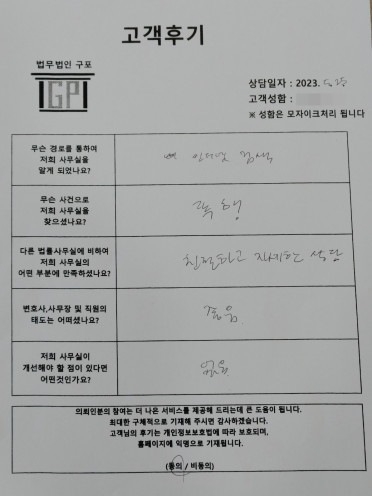 고객후기
법무법인 구포
GP
상담일자 : 2023.
고객성함 :
※ 성함은 모자이크처리 됩니다
무슨 경로를 통하여
저희 사무실을
알게 되었나요?
인터넷 검색
무슨 사건으로
저희 사무실을
찾으셨나요?
폭행
다른 법률사무실에 비하여
저희 사무실의
어떤 부분에 만족하셨나요?
친절하고 자세한 상담
변호사,사무장 및 직원의
태도는 어떠셨나요?
좋음
저희 사무실이
개선해야 할 점이 있다면
어떤것인가요?
없음
의뢰인분의 참여는 더 나은 서비스를 제공해 드리는데 큰 도움이 됩니다.
최대한 구체적으로 기재해 주시면 감사하겠습니다.
고객님의 후기는 개인정보보호법에 따라 보호되며,
홈페이지에 익명으로 기재됩니다.
(동의 / 비동의)